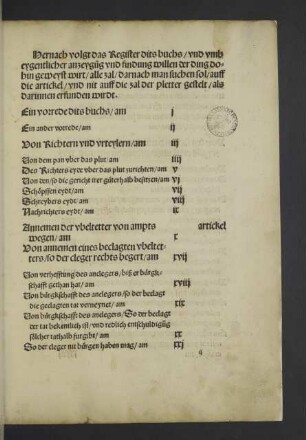 Hernach volgt das Register dits buchs/ vnd vmb
eygentlicher anzeygūg vnd findung willen der ding do-
hin geweyst wirt/ alle zal/ darnach man suchen sol/ auff
die artickel/ vnd nit auff die zal der pletter gestelt/ als
darinnen erfunden wirdt.
Ein vorrede dits buchs/ am j
Ein ander vorrede/ am ij
Von Richtern vnd vrteylern/ am iij
Von dem pan vber das plut/ am iiij
Des Richters eyde vber das plut zurichten/ am v
Von den so die gericht irer güterhalb besitzen/ am vj
Schöpffen eydt/ am vij
Schreybers eydt/ am viij
Nachrichters eydt/ am ix
Annemen der vbeltetter von ampts artickel
wegen/ am x
Von annemen eines beclagten vbeltet-
ters/ so der cleger rechts begert/ am xvij
Von verhefftung des anclegers/ biß er bürgk-
schafft gethan hat/ am xviij
Von bürgkschafft des anclegers/ so der beclagt
die geclagten tat verneynet/ am xix
Von bürgkschafft des anclegers/ So der beclagt
der tat bekantlich ist/ vnd redlich entschuldigūg
solcher tathalb furgibt/ am xx
So der cleger nit bürgen haben mag/ am xxj